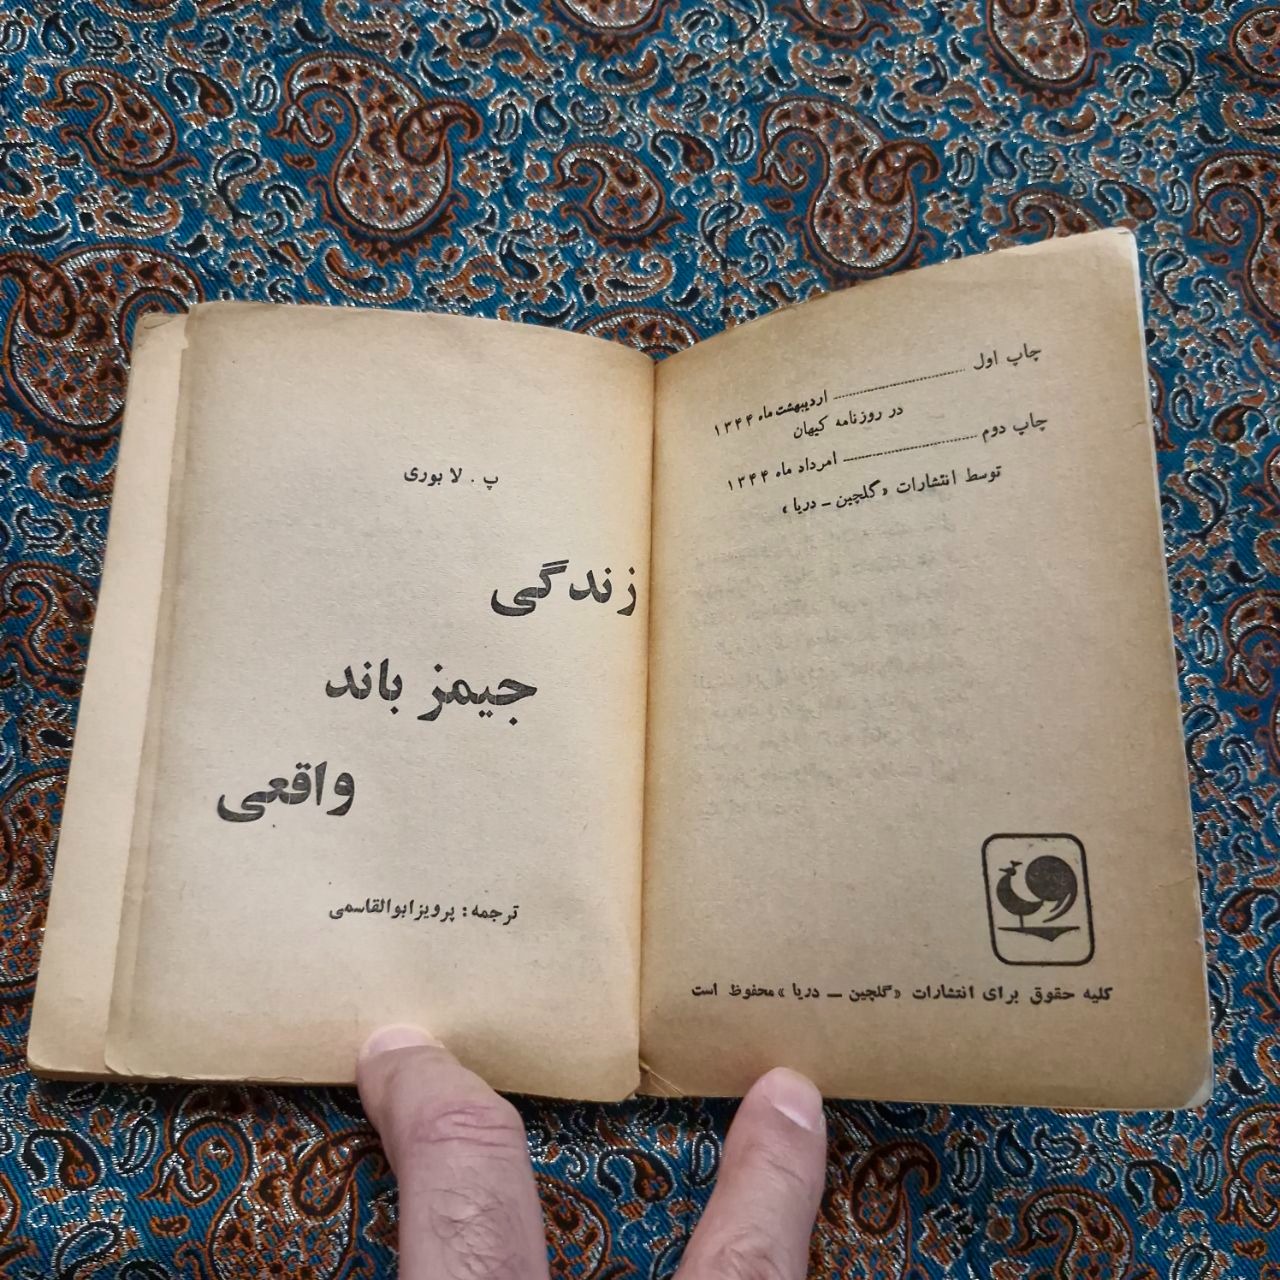 چاپ اول ........................ اردیبهشت ماه ۱۳۴۴
در روزنامه کیهان
چاپ دوم ........................ امرداد ماه ۱۳۴۴
توسط انتشارات «گلچین ـ دریا»
کلیه حقوق برای انتشارات «گلچین ـ دریا» محفوظ است
پ . لابوری
زندگی
جیمز باند
واقعی
ترجمه: پرویز ابوالقاسمی